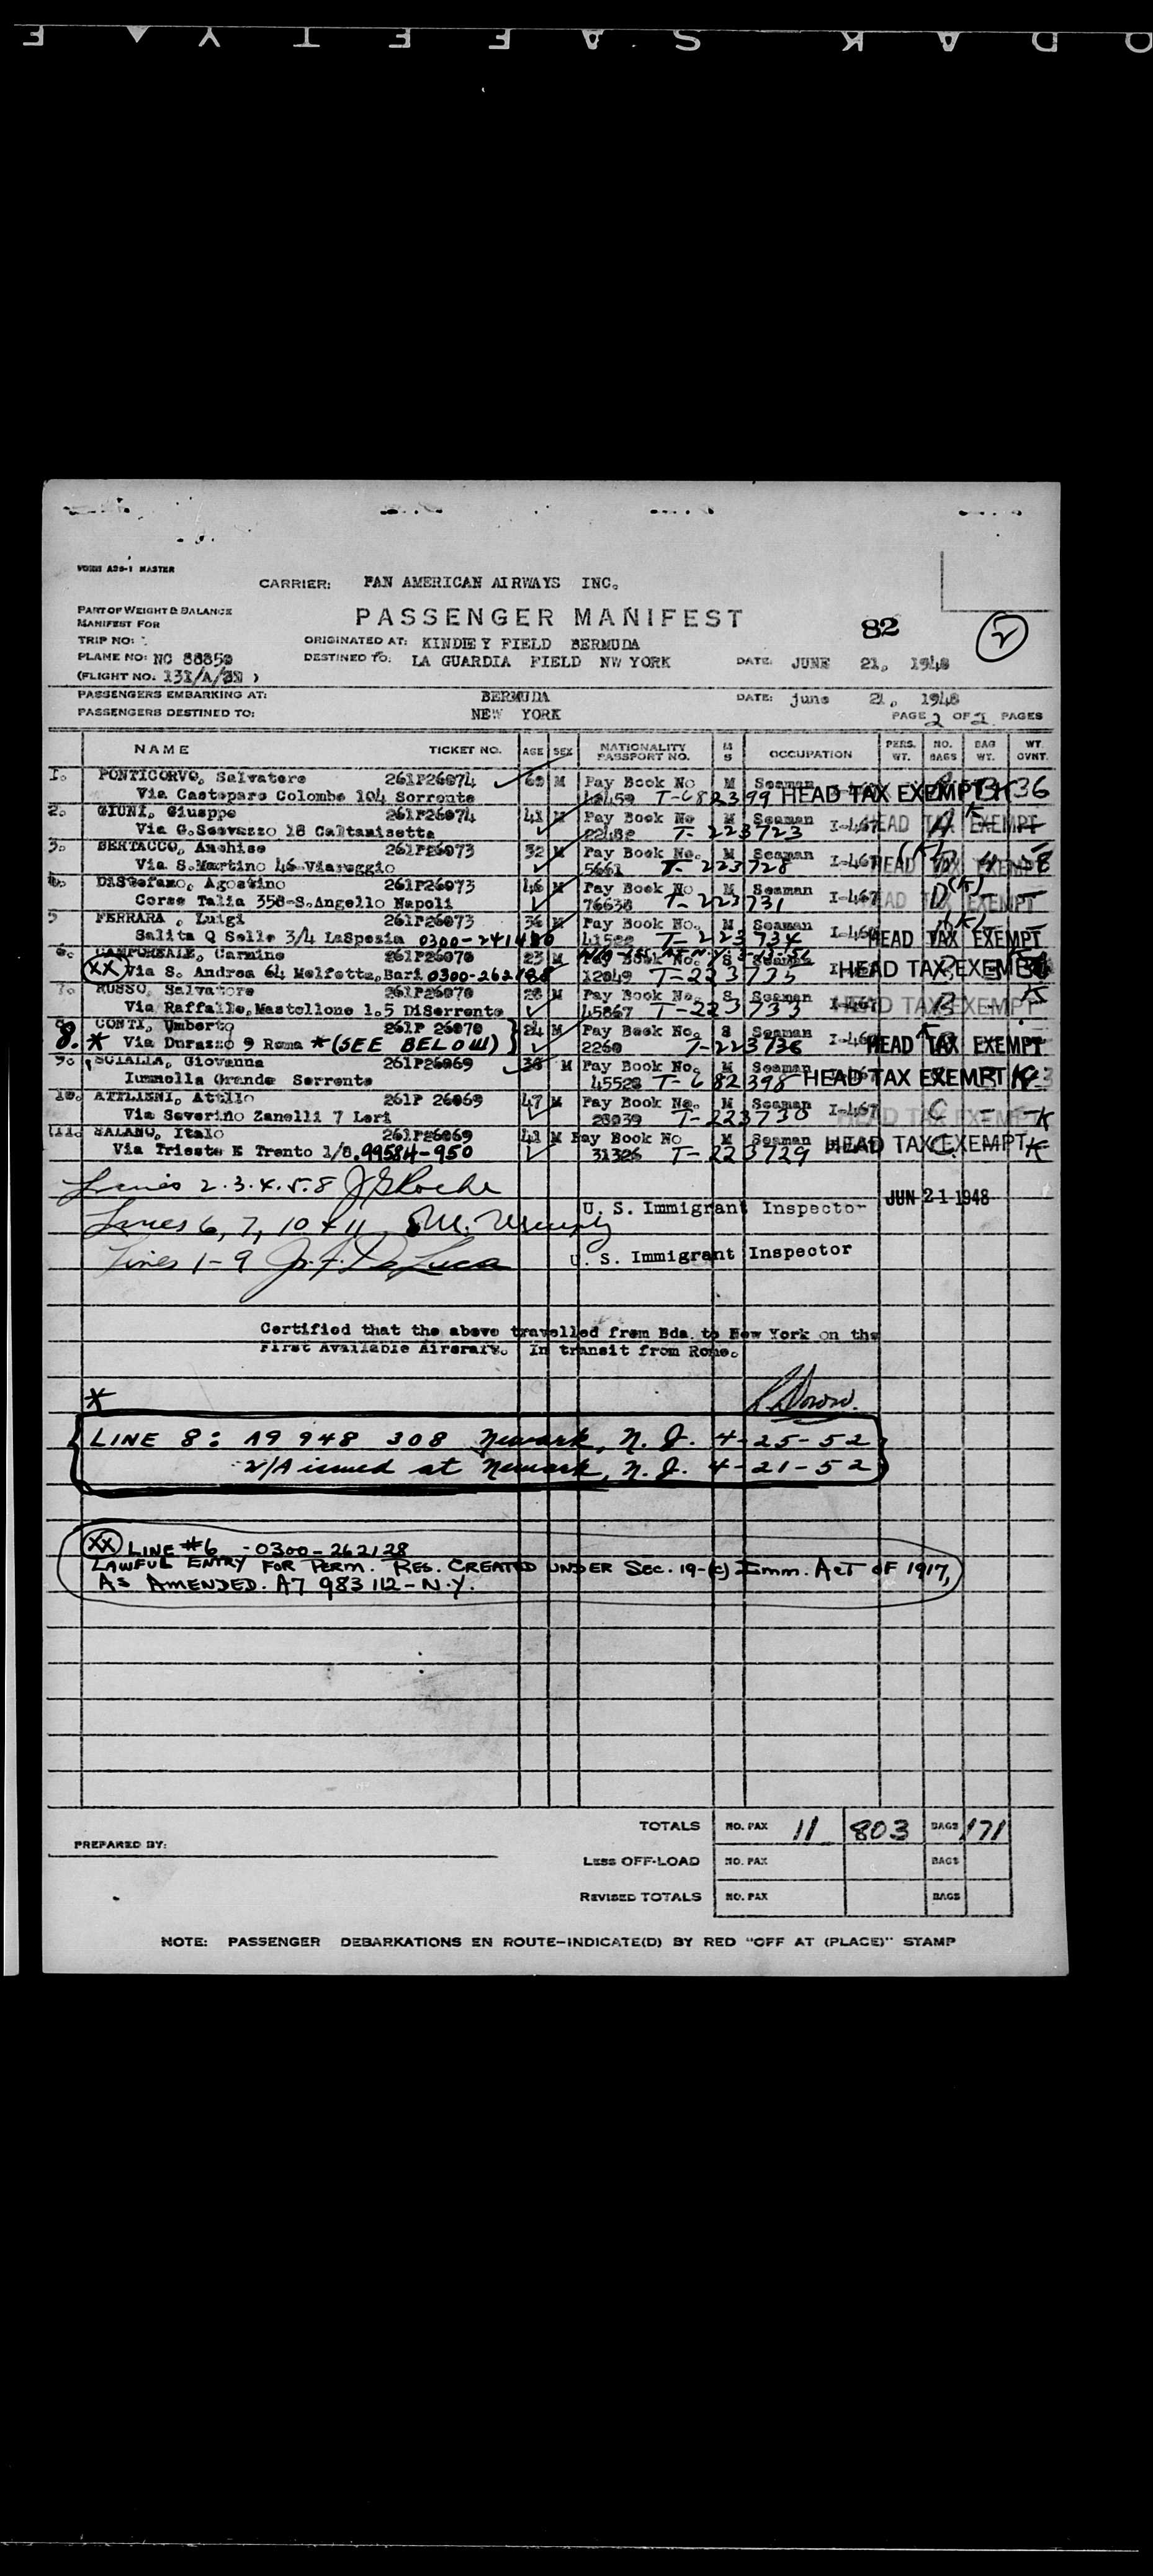 KODAK SAFETY
FORM A20-1 MASTER
CARRIER: PAN AMERICAN AIRWAYS INC.
PART OF WEIGHT & BALANCE
MANIFEST FOR
PASSENGER MANIFEST
82
2
TRIP NO:
ORIGINATED AT: KINDLEY FIELD BERMUDA
PLANE NO: NC 88850
DESTINED TO: LA GUARDIA FIELD NW YORK DATE: JUNE 21, 1948
(FLIGHT NO. 131/A/ )
PASSENGERS EMBARKING AT: BERMUDA DATE: june 21, 1948
PASSENGERS DESTINED TO: NEW YORK PAGE 2 OF 2 PAGES
NAME TICKET NO. AGE SEX NATIONALITY PASSPORT NO. M S OCCUPATION PERS. WT. NO. BAGS BAG WT. WT. OVNT.
1. PONTICORVO, Salvatore 261P26074 M Pay Book No M Seaman
Via Castopare Colombe 104 Sorrente T-682399 HEAD TAX EXEMPT 36
2. GIUNI, Giuseppe 261P26074 41 M Pay Book No M Seaman
Via G. 18 Caltanisetta 22482 T-223723 I-467 HEAD TAX EXEMPT
3. BERTACCO, Anchise 261P26073 32 M Pay Book No. M Seaman
Via S.Martino 46 Viareggio 5661 T-223728 I-467 HEAD TAX EXEMPT
4. DiStefano, Agostino 261P26073 46 M Pay Book No M Seaman
Corse Talia 358-S.Angello Napoli 76638 T-223731 I-467 HEAD TAX EXEMPT
5 FERRARA, Luigi 261P26073 36 M Pay Book No. M Seaman
Salita Q Selle 3/4 LaSpesia 0300-241480 41522 T-223734 HEAD TAX EXEMPT
6. CAMPOREALE, Carmine 261P26070 23 M Pay Book No. S Seaman
XX Via S. Andrea 64 Molfetta, Bari 0300-262128 12049 T-223735 HEAD TAX EXEMPT
7. RUSSO, Salvatore 261P26070 28 M Pay Book No. S Seaman
Via Raffalle, Mastellone 1.5 DiSerrente 45867 T-223733 HEAD TAX EXEMPT K
8. CONTI, Umberto 261P 26070 24 M Pay Book No. S Seaman
8. * Via Durazzo 9 Roma * (SEE BELOW) 2260 T-223736 HEAD TAX EXEMPT
9. SCIALLA, Giovanna 261P26069 38 M Pay Book No. M Seaman
Iummolla Grande Serrente 45528 T-682398 HEAD TAX EXEMPT
10. ATILIENI, Atilio 261P 26069 47 M Pay Book No. M Seaman
Via Severino Zanelli 7 Leri 28039 T-223730 I-467 C K
11. SALANO, Italo 261P26069 41 M Pay Book No M Seaman
Via Trieste E Trento 1/8. 99584-950 31326 T-223729 HEAD TAX EXEMPT K
Lines 2.3.4.5.8 J G Roche
U. S. Immigrant Inspector JUN 21 1948
Lines 6, 7, 10 & 11 M. Murphy
Lines 1-9 J. F. DeLuca U. S. Immigrant Inspector
Certified that the above travelled from Bda. to New York on the
First Available Aircraft. In transit from Rome.
*
LINE 8: A9 948 308 Newark, N. J. 4-25-52
V/A issued at Newark, N. J. 4-21-52
XX LINE #6 - 0300-262128
LAWFUL ENTRY FOR PERM. RES. CREATED UNDER SEC. 19-(c) IMM. ACT OF 1917,
AS AMENDED. A7 983 112 - N.Y.
TOTALS NO. PAX 11 803 BAGS 171
PREPARED BY:
LESS OFF-LOAD NO. PAX BAGS
REVISED TOTALS NO. PAX BAGS
NOTE: PASSENGER DEBARKATIONS EN ROUTE-INDICATE(D) BY RED "OFF AT (PLACE)" STAMP